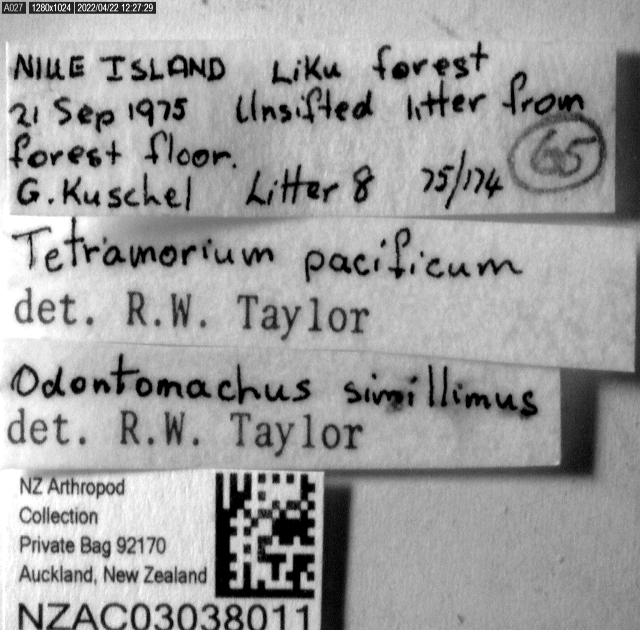 A027 1280x1024 2022/04/22 12:27:29
NIUE ISLAND Liku forest
21 Sep 1975 Unsifted litter from
forest floor.
G. Kuschel Litter 8 75/174
65
Tetramorium pacificum
det. R.W. Taylor
Odontomachus simillimus
det. R.W. Taylor
NZ Arthropod
Collection
Private Bag 92170
Auckland, New Zealand
NZAC03038011